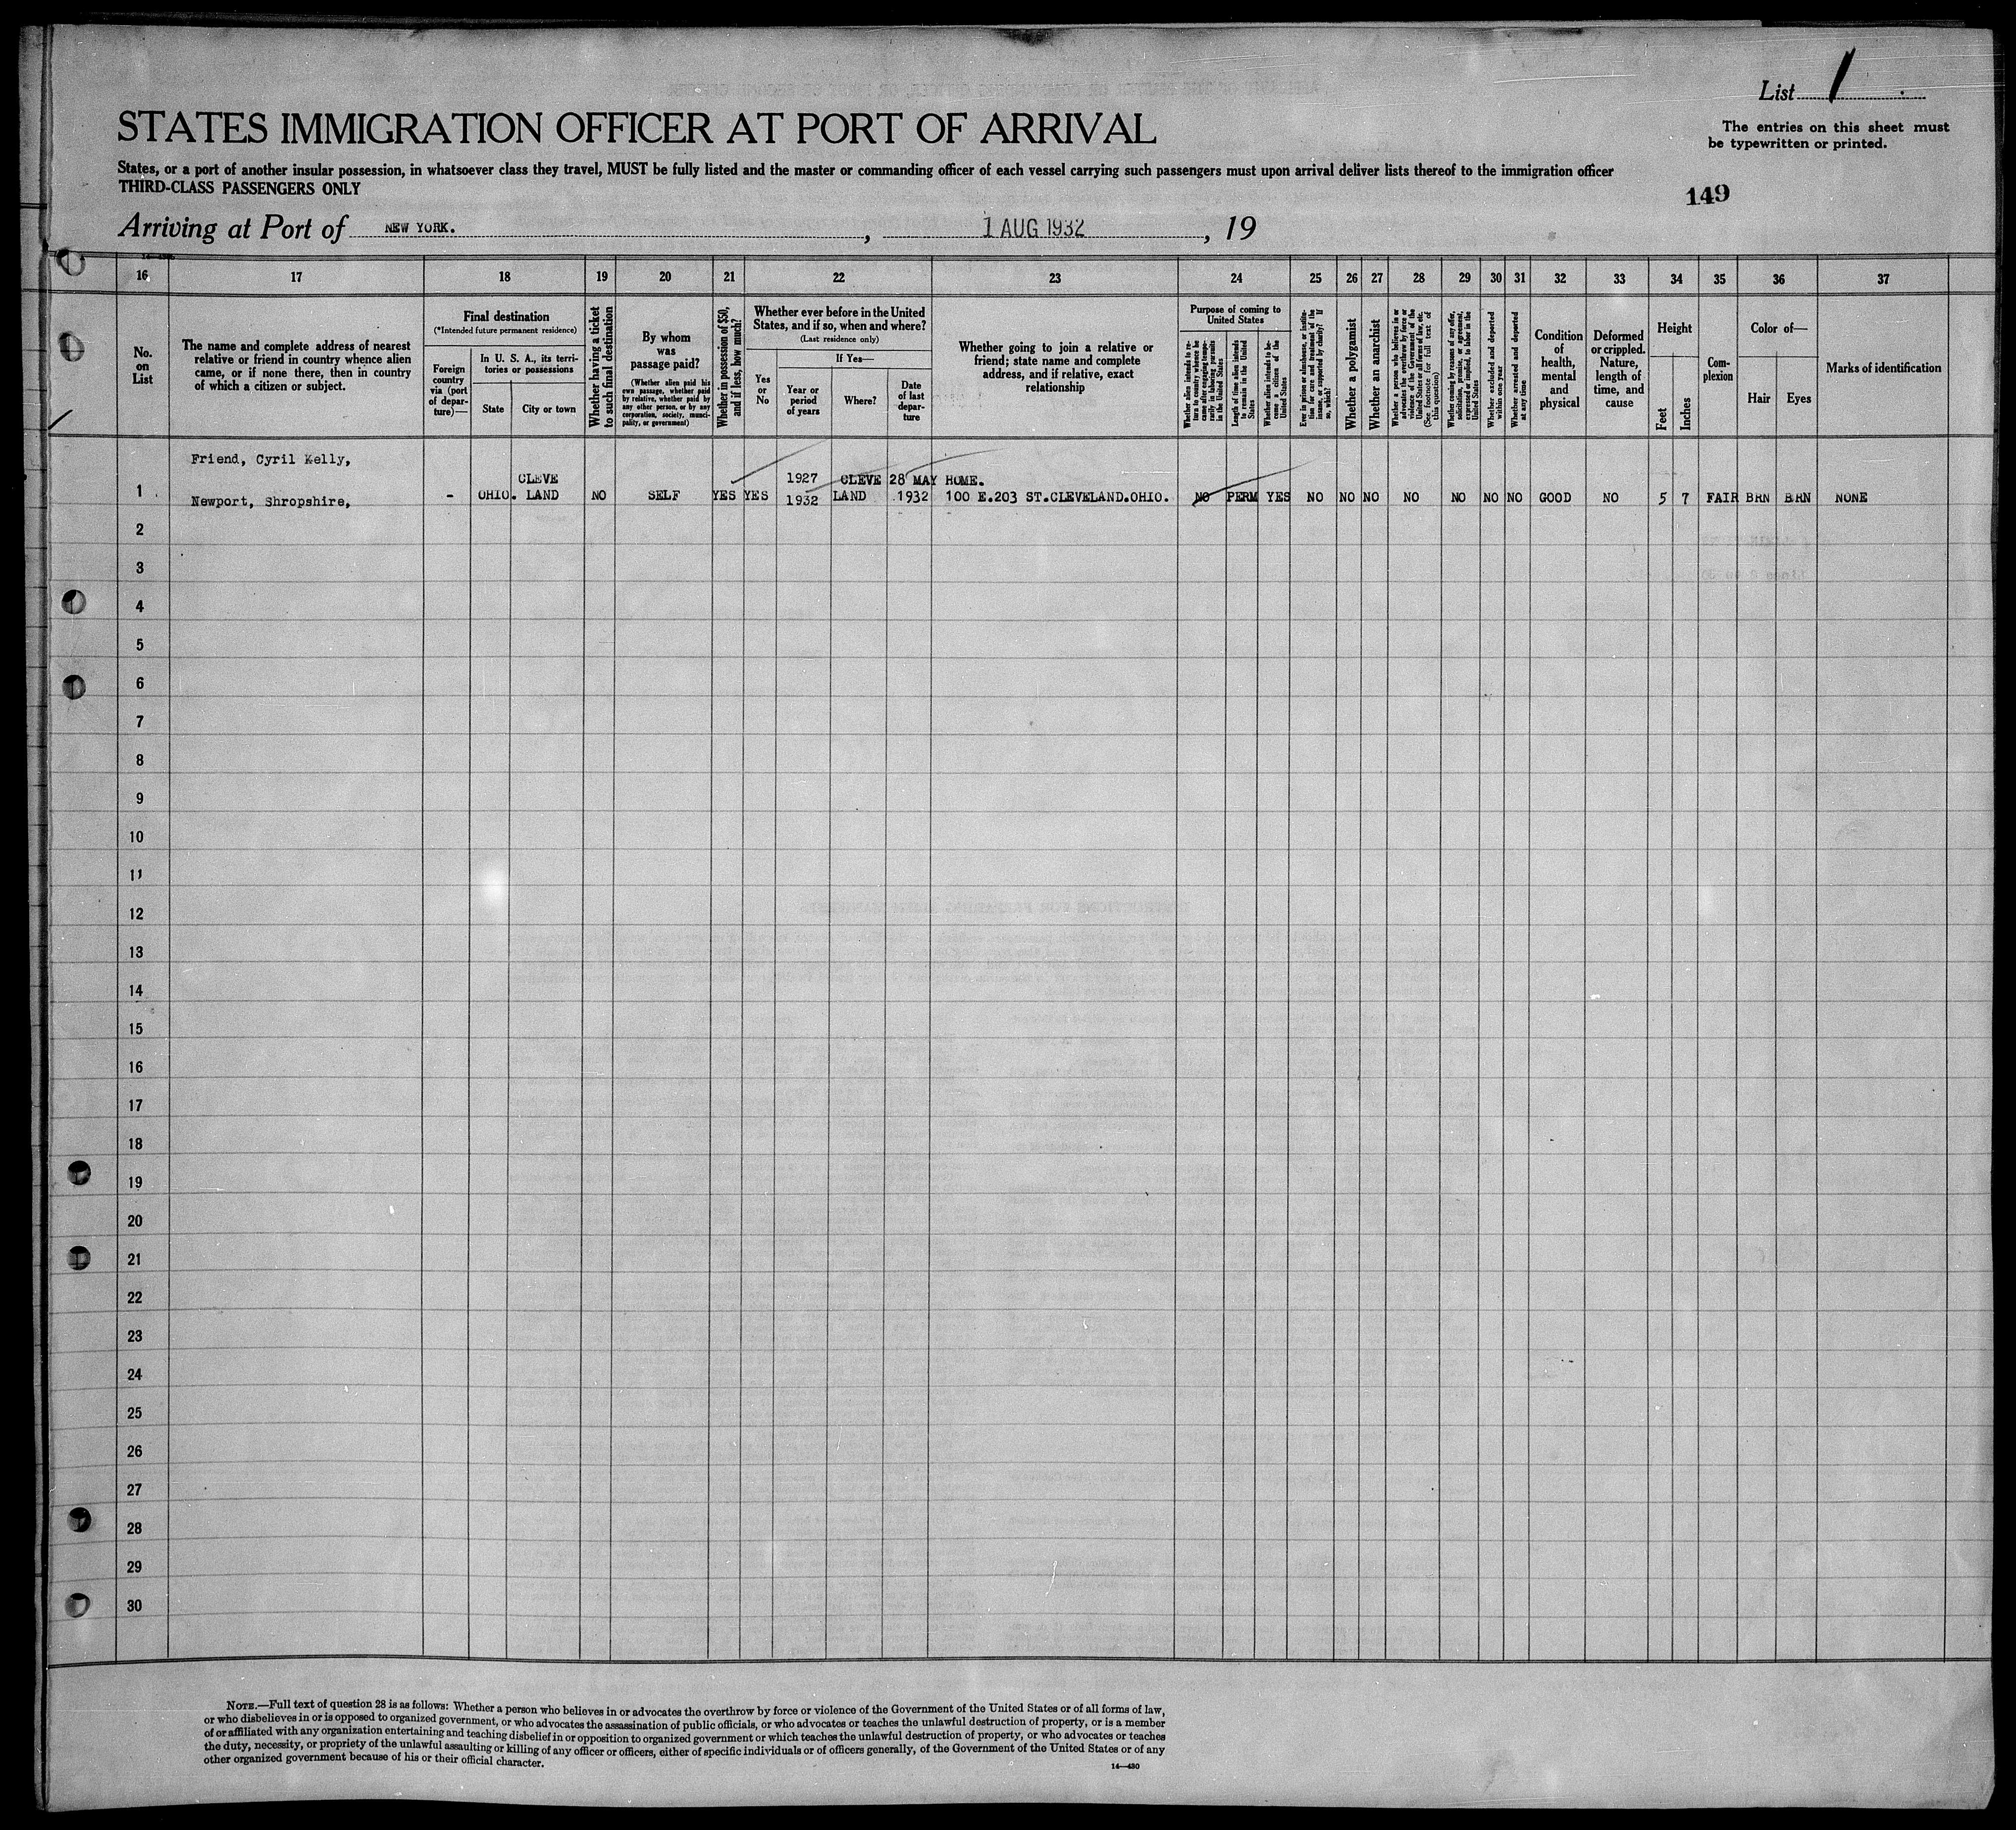 List 1
The entries on this sheet must
be typewritten or printed.
STATES IMMIGRATION OFFICER AT PORT OF ARRIVAL
States, or a port of another insular possession, in whatsoever class they travel, MUST be fully listed and the master or commanding officer of each vessel carrying such passengers must upon arrival deliver lists thereof to the immigration officer
THIRD-CLASS PASSENGERS ONLY
149
Arriving at Port of NEW YORK. , 1 AUG 1932 , 19
16 17 18 19 20 21 22 23 24 25 26 27 28 29 30 31 32 33 34 35 36 37
No.
on
List
The name and complete address of nearest
relative or friend in country whence alien
came, or if none there, then in country
of which a citizen or subject.
Final destination
(*Intended future permanent residence)
Foreign
country
via (port
of depar-
ture)—
In U. S. A., its terri-
tories or possessions
State
City or town
Whether having a ticket
to such final destination
By whom
was
passage paid?
(Whether alien paid his
own passage, whether paid
by relative, whether paid by
any other person, or by any
corporation, society, munici-
pality, or government)
Whether in possession of $50,
and if less, how much?
Whether ever before in the United
States, and if so, when and where?
(Last residence only)
Yes
or
No
If Yes—
Year or
period
of years
Where?
Date
of last
depar-
ture
Whether going to join a relative or
friend; state name and complete
address, and if relative, exact
relationship
Purpose of coming to
United States
Whether alien intends to re-
turn to country whence he
came after engaging tempo-
rarily in laboring pursuits
in the United States
Length of time alien intends
to remain in the United
States
Whether alien intends to be-
come a citizen of the
United States
Ever in prison or almshouse, or institu-
tion for care and treatment of the
insane, or supported by charity? If
so, which?
Whether a polygamist
Whether an anarchist
Whether a person who believes in or
advocates the overthrow by force or
violence of the Government of the
United States or all forms of law, etc.
(See footnote for full text of
this question)
Whether coming by reasons of any offer,
solicitation, promise, or agreement,
expressed or implied, to labor in the
United States
Whether excluded and deported
within one year
Whether arrested and deported
at any time
Condition
of
health,
mental
and
physical
Deformed
or crippled.
Nature,
length of
time, and
cause
Height
Feet
Inches
Com-
plexion
Color of—
Hair
Eyes
Marks of identification
Friend, Cyril Kelly,
CLEVE 1927 CLEVE 28 MAY HOME.
1 Newport, Shropshire, - OHIO. LAND NO SELF YES YES 1932 LAND 1932 100 E.203 ST.CLEVELAND.OHIO. NO PERM YES NO NO NO NO NO NO NO GOOD NO 5 7 FAIR BRN BRN NONE
2
3
4
5
6
7
8
9
10
11
12
13
14
15
16
17
18
19
20
21
22
23
24
25
26
27
28
29
30
NOTE.—Full text of question 28 is as follows: Whether a person who believes in or advocates the overthrow by force or violence of the Government of the United States or of all forms of law,
or who disbelieves in or is opposed to organized government, or who advocates the assassination of public officials, or who advocates or teaches the unlawful destruction of property, or is a member
of or affiliated with any organization entertaining and teaching disbelief in or opposition to organized government or which teaches the unlawful destruction of property, or who advocates or teaches
the duty, necessity, or propriety of the unlawful assaulting or killing of any officer or officers, either of specific individuals or of officers generally, of the Government of the United States or of any
other organized government because of his or their official character.
14—430